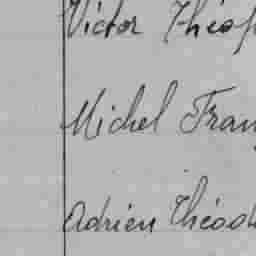 Victor Théop
Michel Fran
Adrien Théod